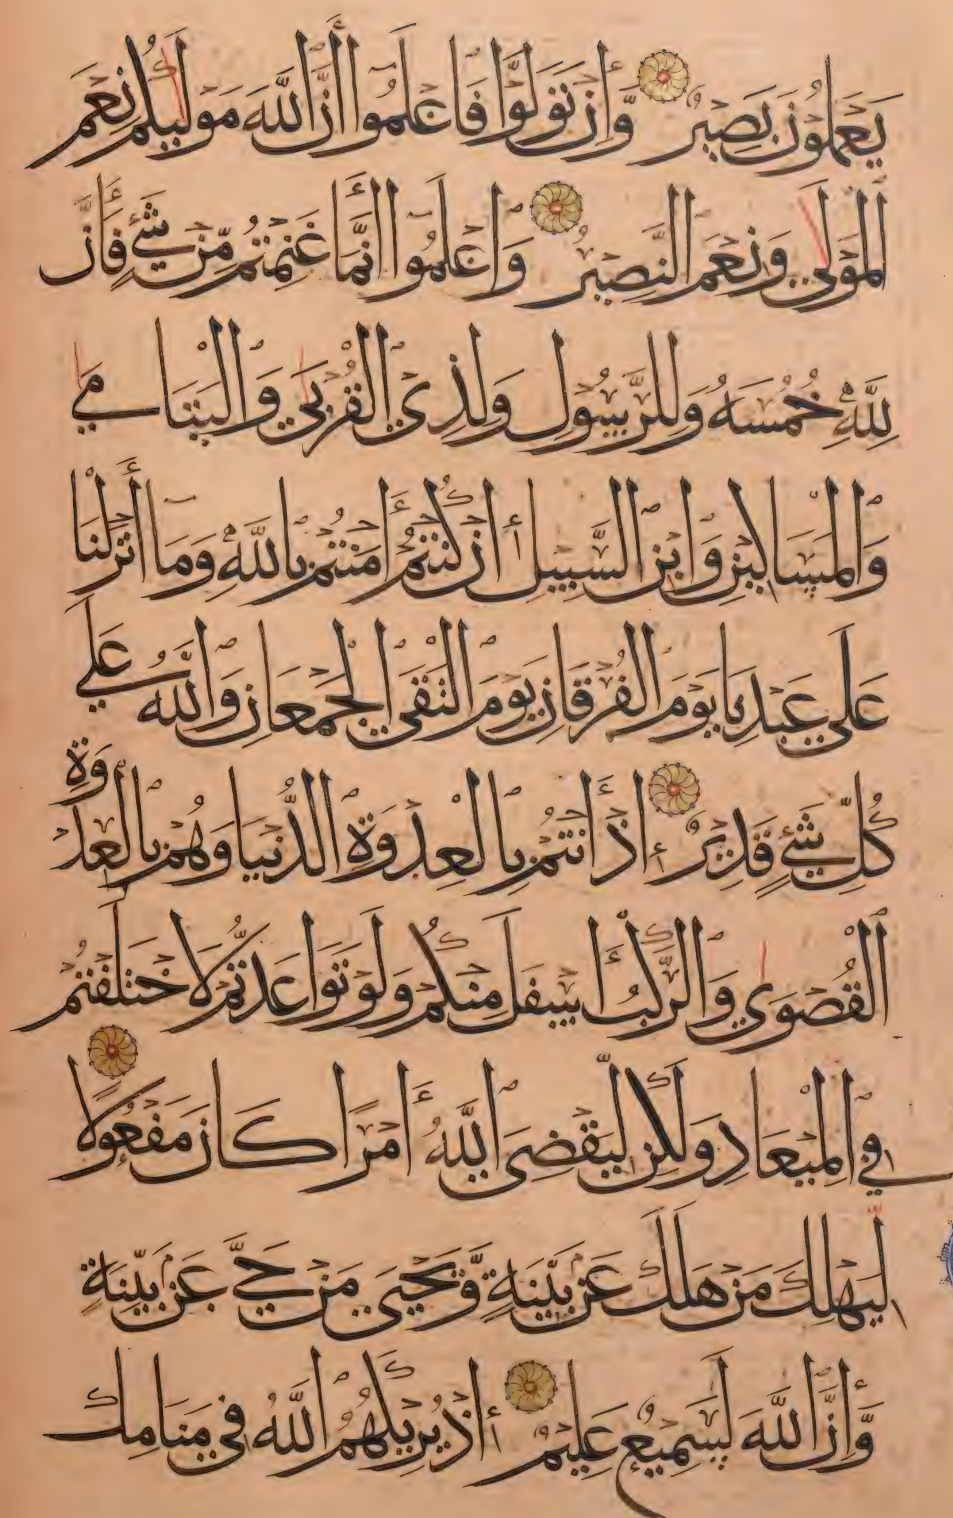 يَعْمَلُونَ بَصِيرٌ وَّإِن تَوَلَّوْا فَاعْلَمُوا أَنَّ اللَّهَ مَوْلَىٰكُمْ نِعْمَ
الْمَوْلَىٰ وَنِعْمَ النَّصِيرُ وَاعْلَمُوا أَنَّمَا غَنِمْتُم مِّن شَيْءٍ فَأَنَّ
لِلَّهِ خُمُسَهُ وَلِلرَّسُولِ وَلِذِي الْقُرْبَىٰ وَالْيَتَامَىٰ
وَالْمَسَاكِينِ وَابْنِ السَّبِيلِ إِن كُنتُمْ آمَنتُم بِاللَّهِ وَمَا أَنزَلْنَا
عَلَىٰ عَبْدِنَا يَوْمَ الْفُرْقَانِ يَوْمَ الْتَقَى الْجَمْعَانِ وَاللَّهُ عَلَىٰ
كُلِّ شَيْءٍ قَدِيرٌ إِذْ أَنتُم بِالْعِدْوَةِ الدُّنْيَا وَهُم بِالْعِدْوَةِ
الْقُصْوَىٰ وَالرَّكْبُ أَسْفَلَ مِنكُمْ وَلَوْ تَوَاعَدتُّمْ لَاخْتَلَفْتُمْ
فِي الْمِيعَادِ وَلَٰكِن لِّيَقْضِيَ اللَّهُ أَمْرًا كَانَ مَفْعُولًا
لِّيَهْلِكَ مَنْ هَلَكَ عَن بَيِّنَةٍ وَّيَحْيَىٰ مَنْ حَيَّ عَن بَيِّنَةٍ
وَّإِنَّ اللَّهَ لَسَمِيعٌ عَلِيمٌ إِذْ يُرِيكَهُمُ اللَّهُ فِي مَنَامِكَ